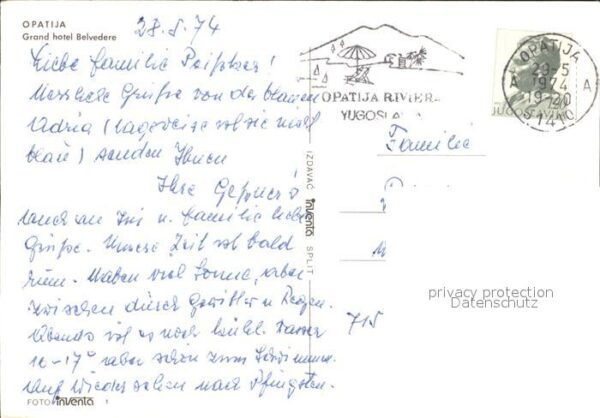 OPATIJA
Grand hotel Belvedere
28.5.74
Liebe Familie
Herzliche Grüße von der blauen
Adria (tagsüber ist sie nicht
blau) senden Ihnen
Ihre
auch an Iris u. Familie liebe
Grüße. Unsere Zeit ist bald
rum. Haben viel Sonne, aber
zwischen durch Gewitter u. Regen.
Abends ist es noch kühl. Wasser
16-17° aber schön zum Schwimmen.
Auf Wiedersehen nach Pfingsten.
FOTO inventa
IZDAVAČ inventa SPLIT
OPATIJA RIVIERA
YUGOSLAV
OPATIJA
29.5
1974
19-20
51410
A A
JUGOSLAVIJA
Familie
715
privacy protection
Datenschutz